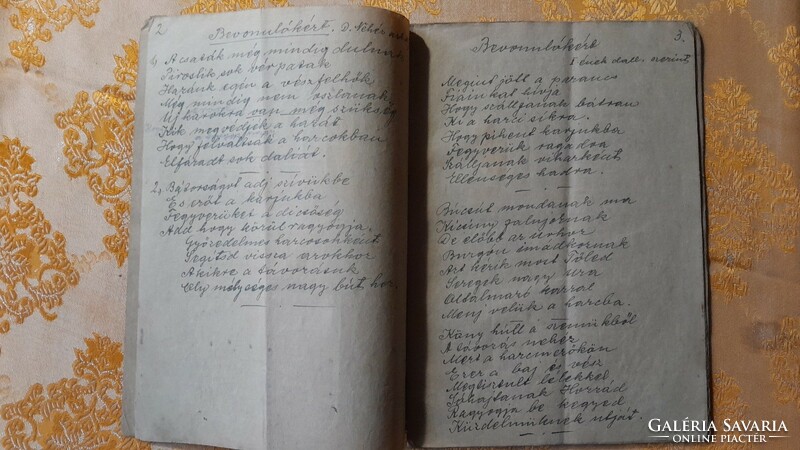 2
Bevonulókért.
1, A csaták még mindig dulnak
Piroslik sok vérpatak
Hazánk egén a vészfelhők
Még mindig nem oszlanak
Uj karokra van még szükség
Kik megvédjék a hazát
Hogy felváltsák a harcokban
Elfáradt sok daliát.
2, Bátorságot adj szivükbe
És erőt a karjukba
Fegyverüket a dicsőség
Add hogy körül ragyogja.
Győzedelmes harcosokként
Segitsd vissza azokhoz
Akikre a távozásuk
Oly mélységes nagy bút hoz
3.
Bevonulókért
ének dall. szerint,
Megint jött a parancs
Fiainkat hivja
Hogy szálljanak bátran
Ki a harci sikra.
Hogy pihent karjukba
Fegyverük ragadva
Szálljanak viharként
Ellenséges hadra.
Búcsút mondanak ma
Kicsiny zalugoknak
De előbb az úrhoz
Buzgón imádkoznak
Azt kérik most Tőled
Seregek nagy ura
Oltalmazó karral
Menj velük a harcba.
Köny hull a szemükből
A távozás nehéz
Mert a harcmezőkön
Ezer a baj és vész
Megtisztult lélekkel
Sóhajtanak Hozzád
Ragyogja be kegyed
Küzdelmüknek utját.
GALÉRIA SAVARIA
ONLINE PIACTÉR